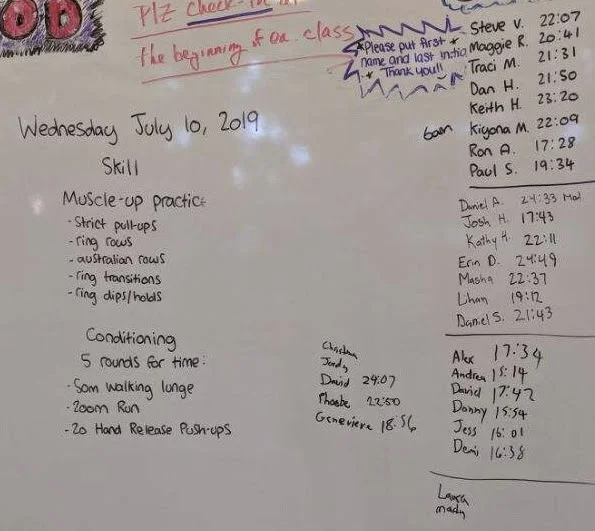 OD
Plz check-in at
the beginning of ea. class
*Please put first *
name and last initial
* Thank you!!
Wednesday July 10, 2019
Skill
Muscle-up practice
-Strict pull-ups
-ring rows
-australian rows
-ring transitions
-ring dips/holds
Conditioning
5 rounds for time:
-50m walking lunge
-200m Run
-20 Hand Release Push-ups
6am
Steve V. 22:07
Maggie R. 20:41
Traci M. 21:31
Dan H. 21:50
Keith H. 23:20
Kiyona M. 22:09
Ron A. 17:28
Paul S. 19:34
Daniel A. 24:33 Mod
Josh H. 17:43
Kathy H. 22:11
Erin D. 24:49
Masha 22:37
Lihan 19:12
Daniel S. 21:43
Christina
Jordy
David 24:07
Phoebe 22:50
Genevieve 18:56
Alex 17:34
Andrea 15:14
David 17:42
Danny 15:54
Jess 16:01
Demi 16:38
Laura
mady